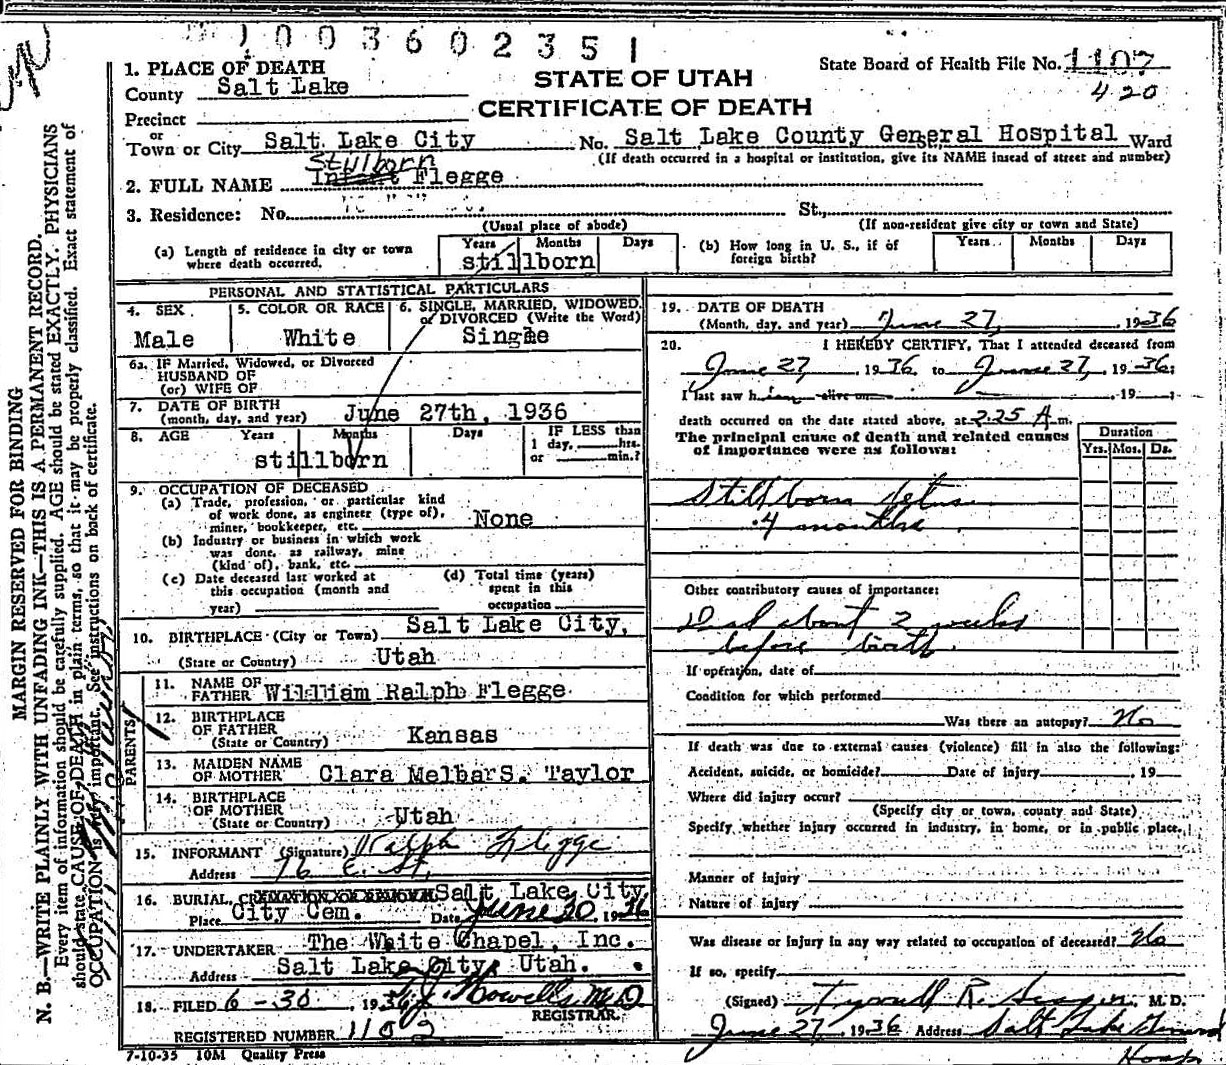 100360235 1
1. PLACE OF DEATH
County Salt Lake
Precinct
or
Town or City Salt Lake City
STATE OF UTAH
CERTIFICATE OF DEATH
State Board of Health File No. 1107
420
No. Salt Lake County General Hospital Ward
(If death occurred in a hospital or institution, give its NAME insead of street and number)
Stillborn
2. FULL NAME Infant Flegge
3. Residence: No. St.,
(Usual place of abode) (If non-resident give city or town and State)
(a) Length of residence in city or town where death occurred. Years Months Days
stillborn
(b) How long in U. S., if of foreign birth? Years Months Days
PERSONAL AND STATISTICAL PARTICULARS
4. SEX Male
5. COLOR OR RACE White
6. SINGLE, MARRIED, WIDOWED, or DIVORCED (Write the Word)
Single
6a. IF Married, Widowed, or Divorced
HUSBAND OF
(or) WIFE OF
7. DATE OF BIRTH
(month, day, and year) June 27th, 1936
8. AGE Years Months Days
stillborn
IF LESS than
1 day, hrs.
or min.?
9. OCCUPATION OF DECEASED
(a) Trade, profession, or particular kind
of work done, as engineer (type of),
miner, bookkeeper, etc. None
(b) Industry or business in which work
was done, as railway, mine
(kind of), bank, etc.
(c) Date deceased last worked at
this occupation (month and
year)
(d) Total time (years)
spent in this
occupation
10. BIRTHPLACE (City or Town) Salt Lake City,
(State or Country) Utah
PARENTS
11. NAME OF
FATHER William Ralph Flegge
12. BIRTHPLACE
OF FATHER
(State or Country) Kansas
13. MAIDEN NAME
OF MOTHER Clara Melbar S. Taylor
14. BIRTHPLACE
OF MOTHER
(State or Country) Utah
15. INFORMANT (Signature) Ralph Flegge
Address 76 E. St.
16. BURIAL, CREMATION OR REMOVAL Salt Lake City
Place City Cem. Date June 30, 1936
17. UNDERTAKER The White Chapel, Inc.
Address Salt Lake City, Utah.
18. FILED 6-30 1936 T. J. Howells M.D.
REGISTRAR.
REGISTERED NUMBER 1102
7-10-35 10M Quality Press
19. DATE OF DEATH
(Month, day, and year) June 27, 1936
20. I HEREBY CERTIFY, That I attended deceased from
June 27, 1936 to June 27, 1936;
I last saw him alive on 19 ;
death occurred on the date stated above, at 2.25 A m.
The principal cause of death and related causes
of importance were as follows:
Duration
Yrs. Mos. Ds.
Stillborn fetus
4 months
Other contributory causes of importance:
Dead about 2 weeks
before birth.
If operation, date of
Condition for which performed
Was there an autopsy? No
If death was due to external causes (violence) fill in also the following:
Accident, suicide, or homicide? Date of injury 19
Where did injury occur?
(Specify city or town, county and State)
Specify whether injury occurred in industry, in home, or in public place,
Manner of injury
Nature of injury
Was disease or injury in any way related to occupation of deceased? No
If so, specify
(Signed) Tyrell R. M. D.
June 27, 1936 Address Salt Lake General
Hosp
MARGIN RESERVED FOR BINDING
N. B.—WRITE PLAINLY WITH UNFADING INK—THIS IS A PERMANENT RECORD.
Every item of information should be carefully supplied. AGE should be stated EXACTLY. PHYSICIANS
should state CAUSE OF DEATH in plain terms, so that it may be properly classified. Exact statement of
OCCUPATION is very important. See instructions on back of certificate.